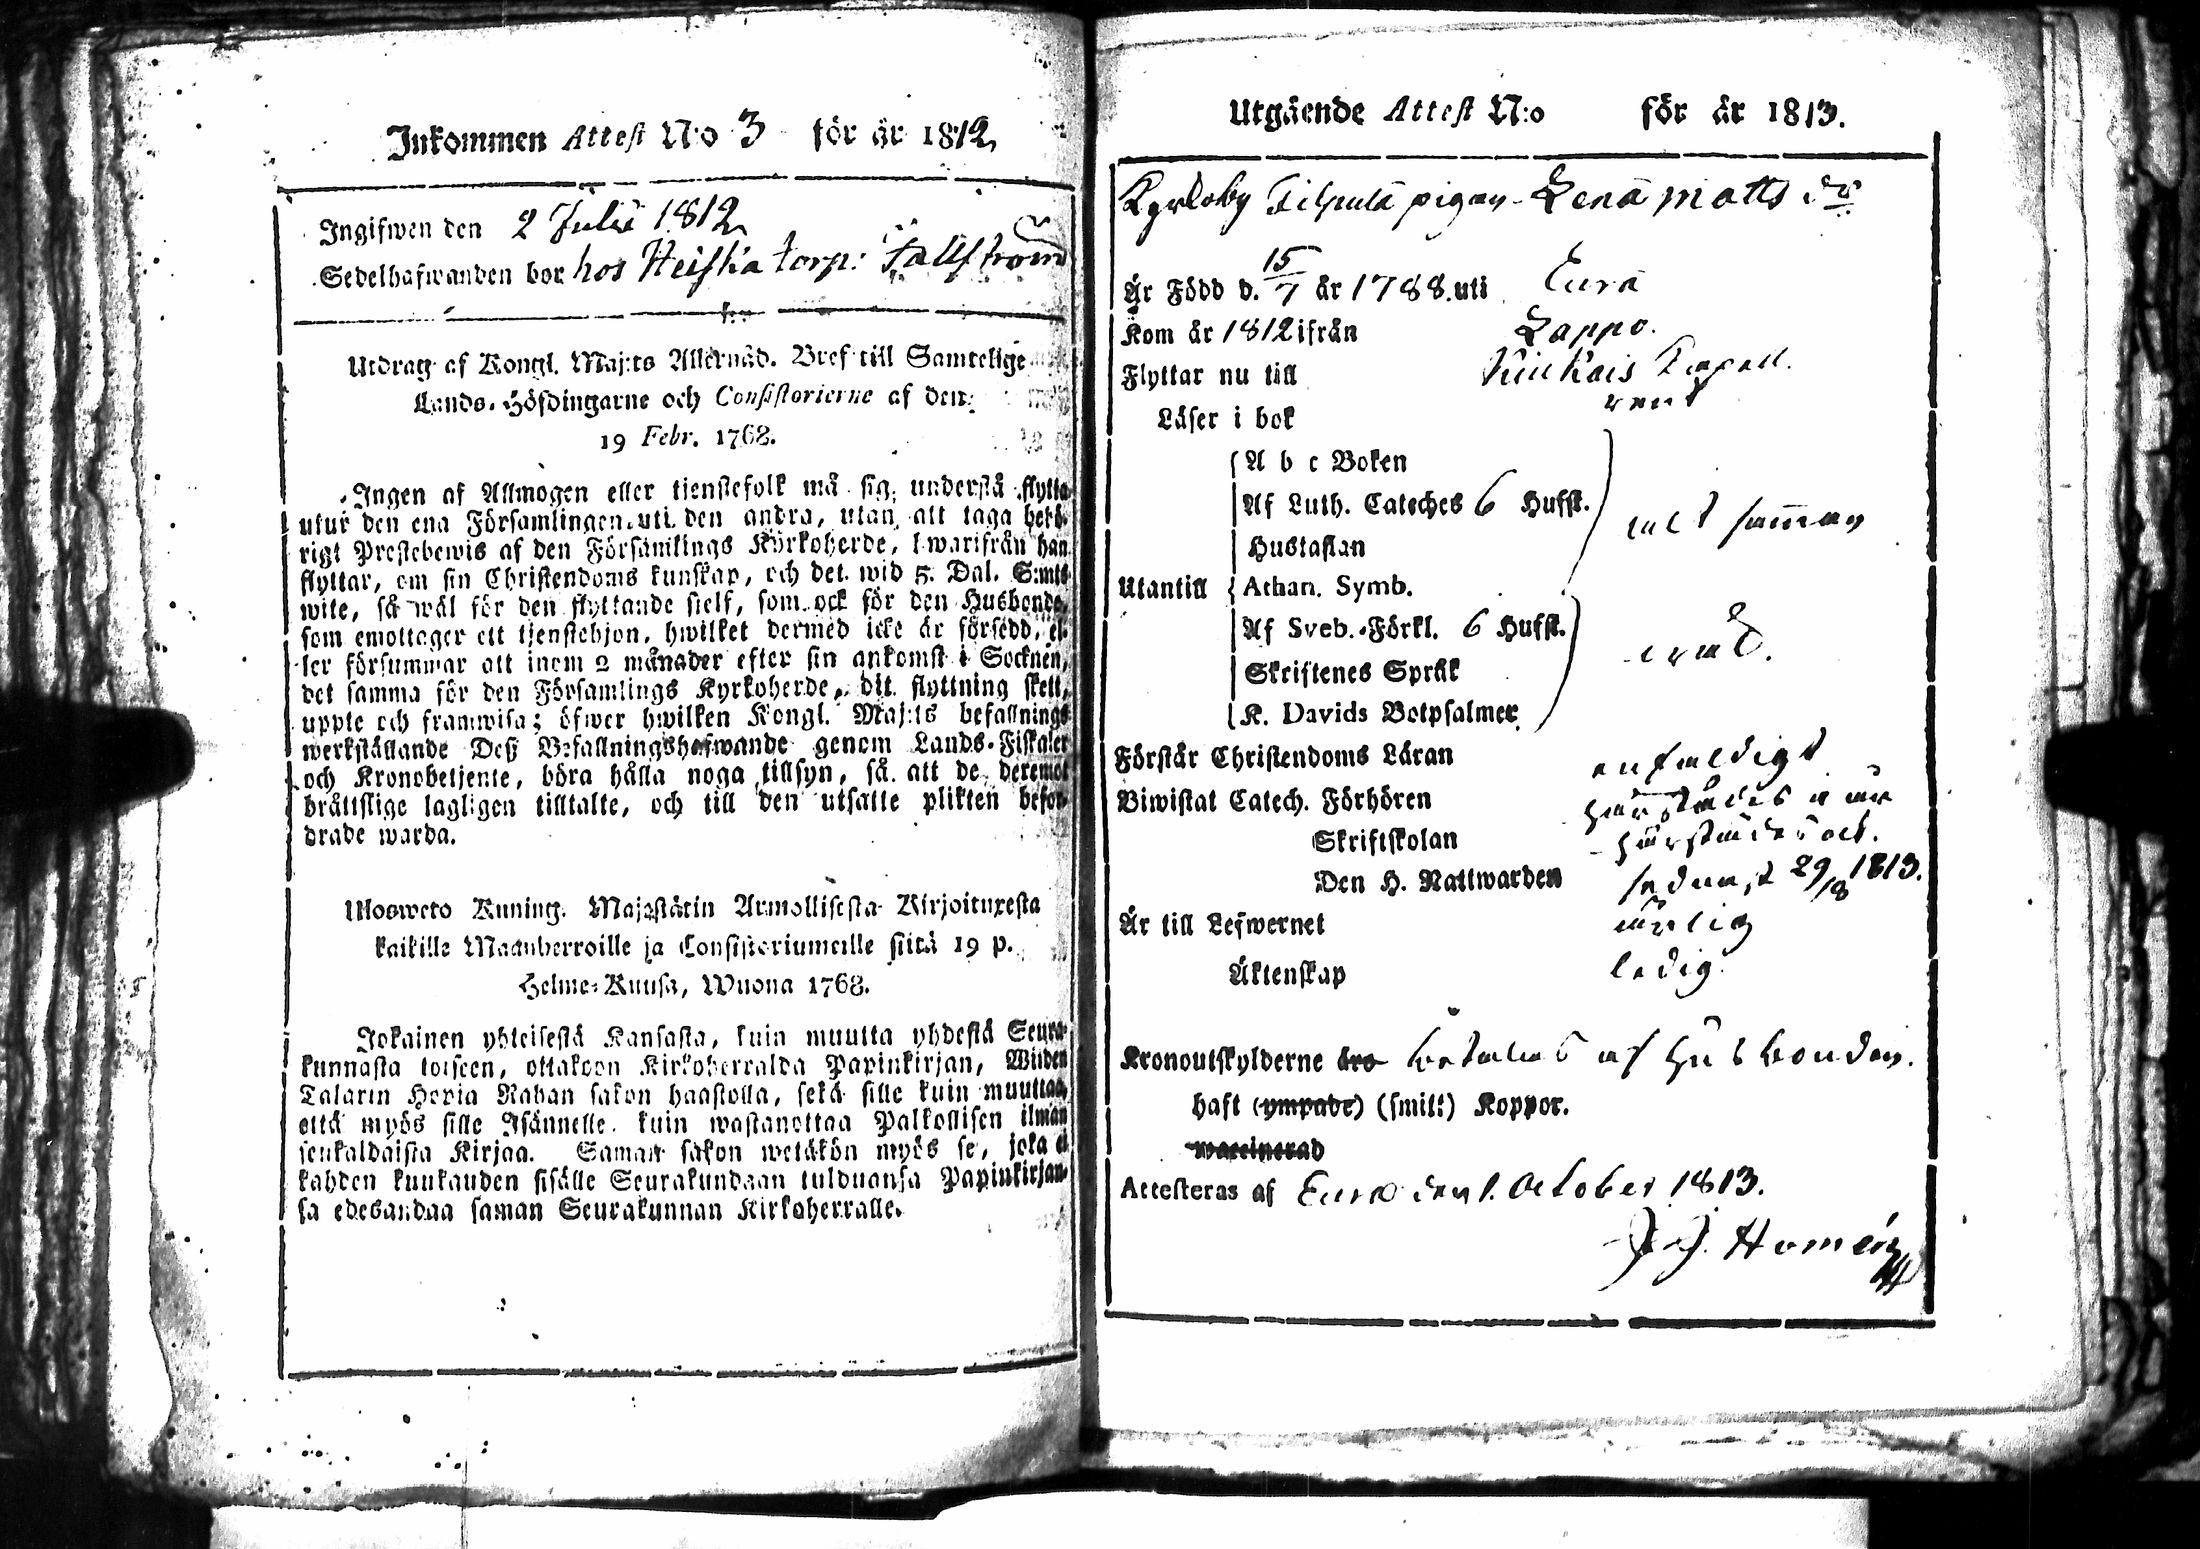 Inkommen Attest N:o 3 för år 1812,
Ingifwen den 2 Julii 1812
Sedelhafwanden bor hos Heiska torp: Fallström
Utdrag af Kongl. Maj:ts Allernåd. Bref till Samtelige
Lands-Höfdingarne och Consistorierne af den
19 Febr. 1768.
Ingen af Allmogen eller tjenstefolk må sig understå flytta
utur den ena Församlingen uti den andra, utan att taga behö-
rigt Prestebewis af den Församlings Kyrkoherde, hwarifrån han
flyttar, om sin Christendoms kunskap, och det wid 5. Dal. S:mts
wite, så wäl för den flyttande sielf, som ock för den Husbonde,
som emottager ett tjenstehjon, hwilket dermed icke är försedd, el-
ler försummar att inom 2 månader efter sin ankomst i Socknen,
det samma för den Församlings Kyrkoherde, dit flyttning skett,
uppte och framwisa; öfwer hwilken Kongl. Maj:ts befallnings
werkställande Deß Befallningshafwande genom Lands-Fiskaler
och Kronobetjente, böra hålla noga tillsyn, så att de deremot
bråttslige lagligen tilltalte, och till den utsatte plikten befor-
drade warda.
Ulosweto Kuning. Majestätin Armollisesta Kirjoituxesta
kaikille Maanherroille ja Consistoriumeille siitä 19 p.
Helme-Kuusa, Wuona 1768.
Jokainen yhteisestä Kansasta, kuin muutta yhdestä Seura-
kunnasta toiseen, ottakoon Kirkoherralda Papinkirjan, Wiiden
Talarin Hopia Rahan sakon haastolla, sekä sille kuin muuttaa,
että myös sille Isännelle, kuin wastanottaa Palkollisen ilman
senkaldaista Kirjaa. Saman sakon wetäkön myös se, joka ei
kahden kuukauden sisälle Seurakundaan tulduansa Papinkirjan-
sa edesandaa saman Seurakunnan Kirkoherralle.
Utgående Attest N:o för år 1813.
Kyrkoby pigan Lena Matts dr
Är Född d. 15/7 år 1788. uti Eura
Kom år 1812 ifrån Lappo.
Flyttar nu till Kiukais Capell.
Läser i bok rent
A b c Boken
Af Luth. Cateches 6 Hufst.
Hustaflan
alt samman
Utantill Athan. Symb.
Af Sveb. Förkl. 6 Hufst.
Skriftenes Språk
K. Davids Botpsalmer
Förstår Christendoms Läran enfaldigt
Biwistat Catech. Förhören härstädes i år
Skriftskolan härstädes ock.
Den H. Nattwarden sednast 29/8 1813.
Är till Lefwernet ärlig
Äktenskap ledig.
Kronoutskylderne äro betalas af husbonden.
haft (ympade) (smitt) Koppor.
waccinerad
Attesteras af Eura den 1. October 1813.
J. J. Homén